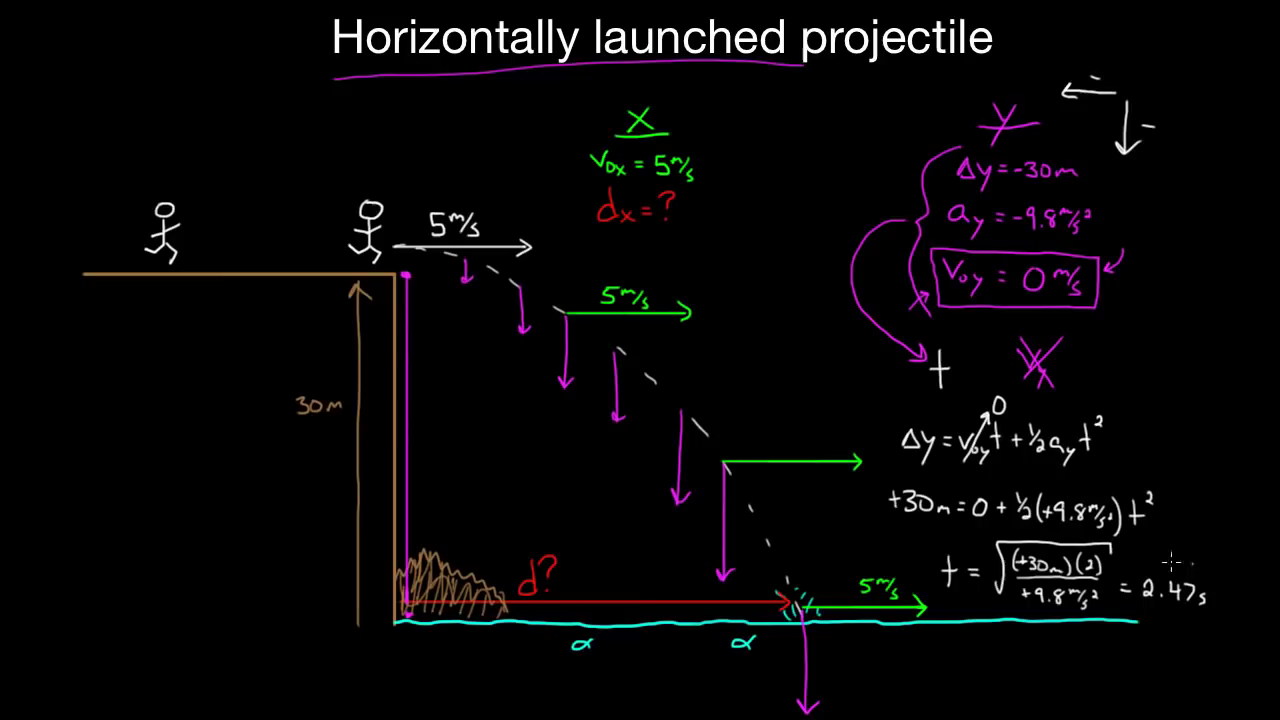 Horizontally launched projectile
X
v₀ₓ = 5 m/s
dₓ = ?
-
-
y
Δy = -30m
a_y = -9.8 m/s²
v₀y = 0 m/s
5 m/s
5 m/s
t
30m
0
Δy = v₀y t + ½ a_y t²
+30m = 0 + ½(+9.8 m/s²) t²
t = √((+30m)(2) / +9.8 m/s²) = 2.47s
d?
5 m/s
α α